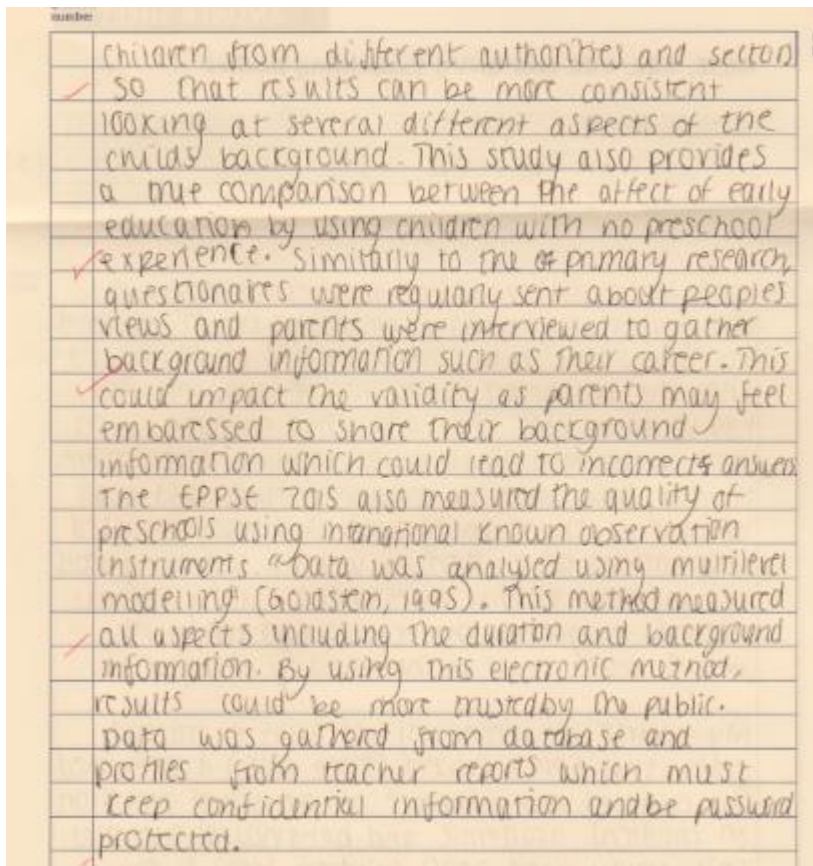 number
children from different authorities and sectors
so that results can be more consistent
looking at several different aspects of the
childs background. This study also provides
a true comparison between the affect of early
education by using children with no preschool
experience. Similarly to the primary research,
questionaires were regularly sent about peoples
views and parents were interviewed to gather
background information such as their career. This
could impact the validity as parents may feel
embaressed to share their background
information which could lead to incorrect answers.
The EPPSE 2015 also measured the quality of
preschools using known observation
instruments "Data was analysed using multilevel
modelling" (Goldstein, 1995). This method measured
all aspects including the duration and background
information. By using this electronic method,
results could be more trusted by the public.
Data was gathered from database and
profiles from teacher reports which must
keep confidential information and be password
protected.